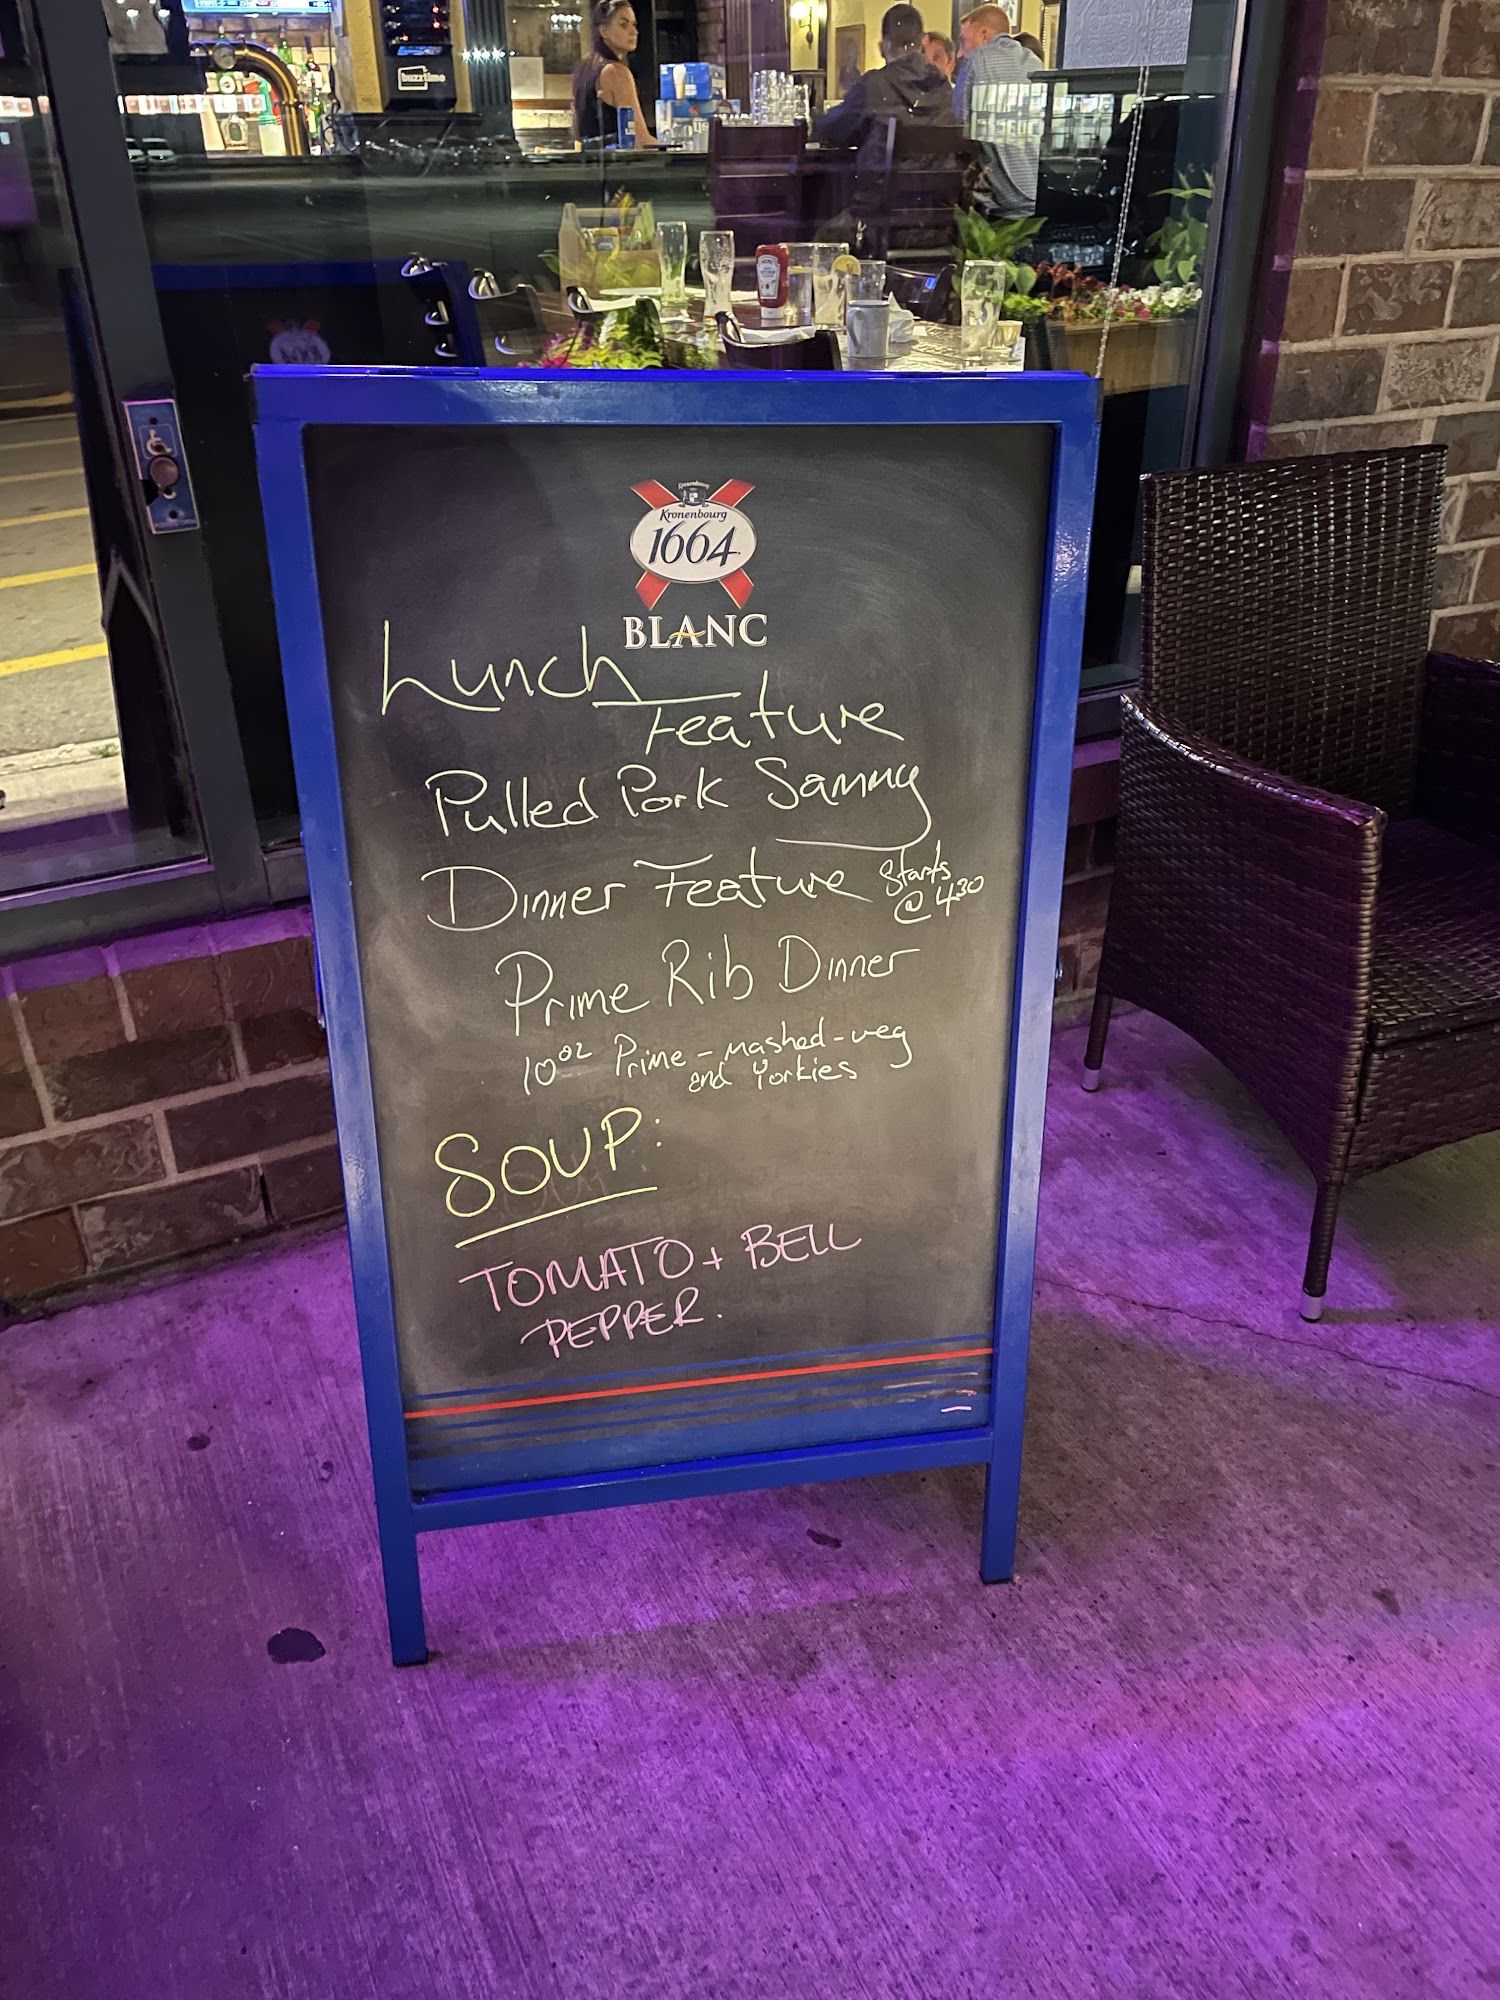 buzztime
Kronenbourg
1664
BLANC
Lunch
Feature
Pulled Pork Sammy
Dinner Feature Starts
@ 430
Prime Rib Dinner
10oz Prime - mashed - veg
and Yorkies
SOUP:
TOMATO + BELL
PEPPER.